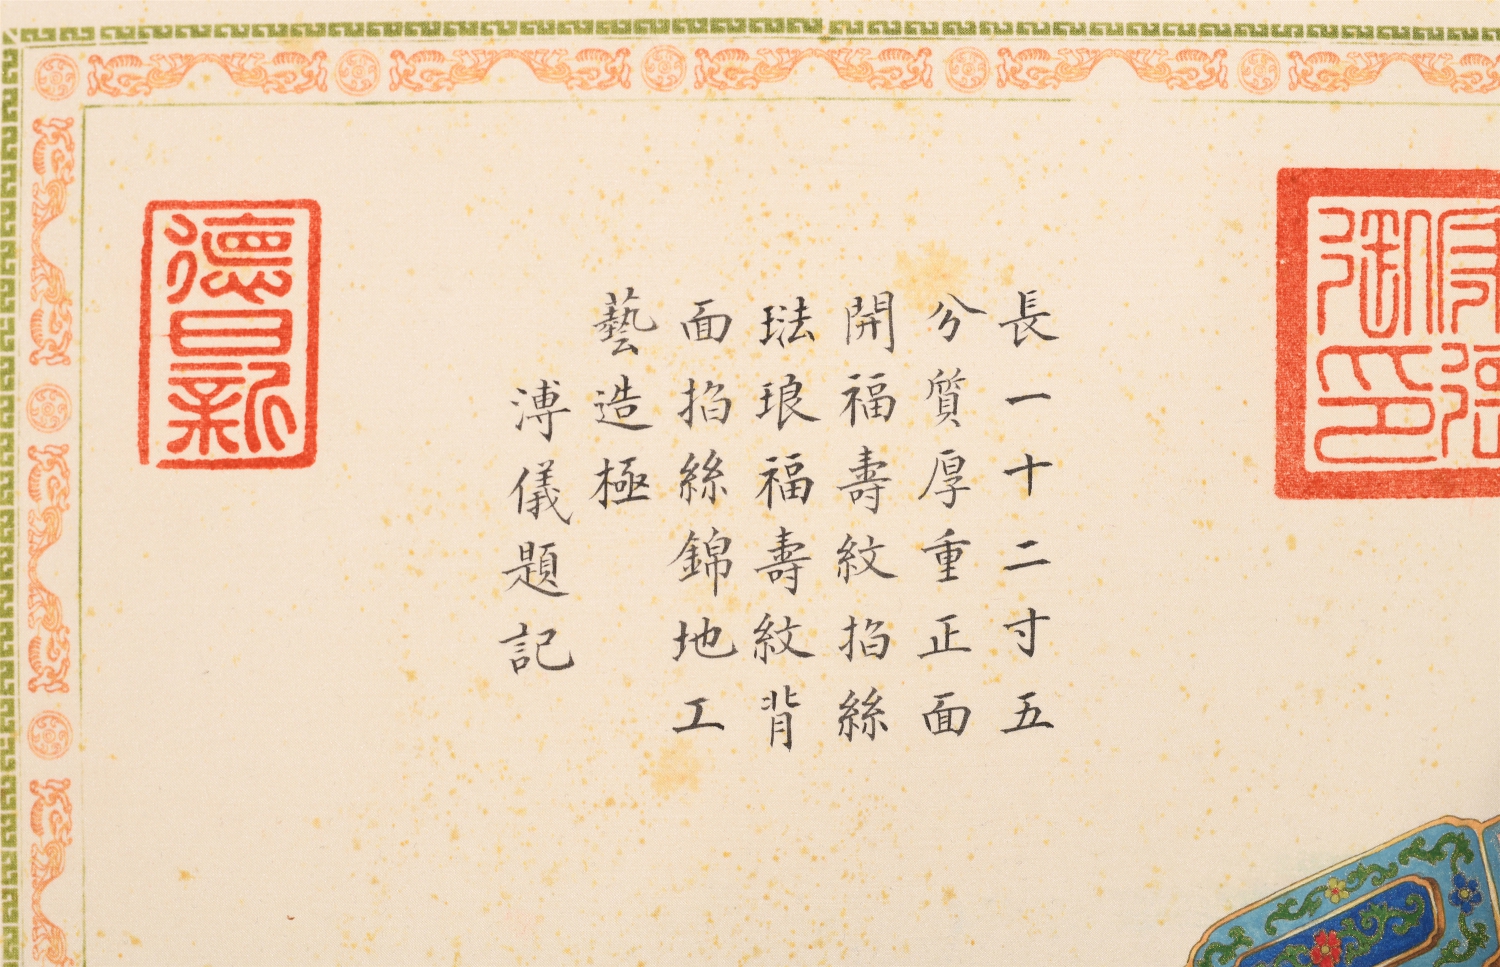 長一十二寸五
分質厚重正面
開福壽紋掐絲
琺瑯福壽紋背
面掐絲錦地工
藝造極
溥儀題記
德日新